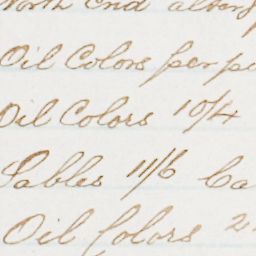 North End
Oil Colors per
Oil Colors 10/4
Sables 11/6
Oil Colors